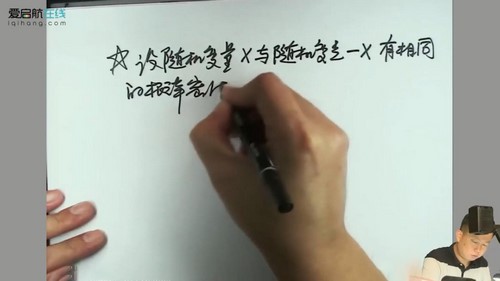 爱启航在线
iqihang.com
☆设随机变量X与随机变量-X有相同
的概率密